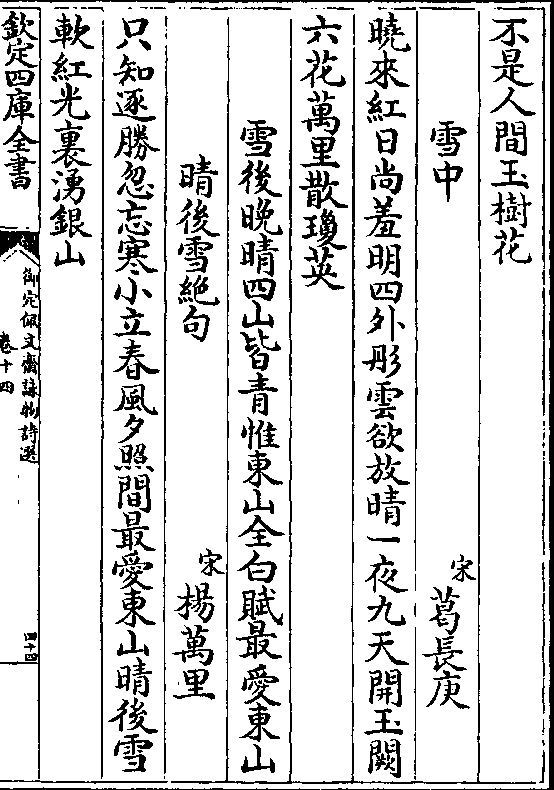 不是人間玉樹花
雪中
宋
葛長庚
曉來紅日尚羞明四外彤雲欲放晴一夜九天開玉闕
六花萬里散瓊英
雪後晚晴四山皆青惟東山全白賦最愛東山
晴後雪絶句
宋
楊萬里
只知逐勝忽忘寒小立春風夕照間最愛東山晴後雪
軟紅光裏湧銀山
欽定四庫全書
御定佩文齋詠物詩選
卷十四
四十四